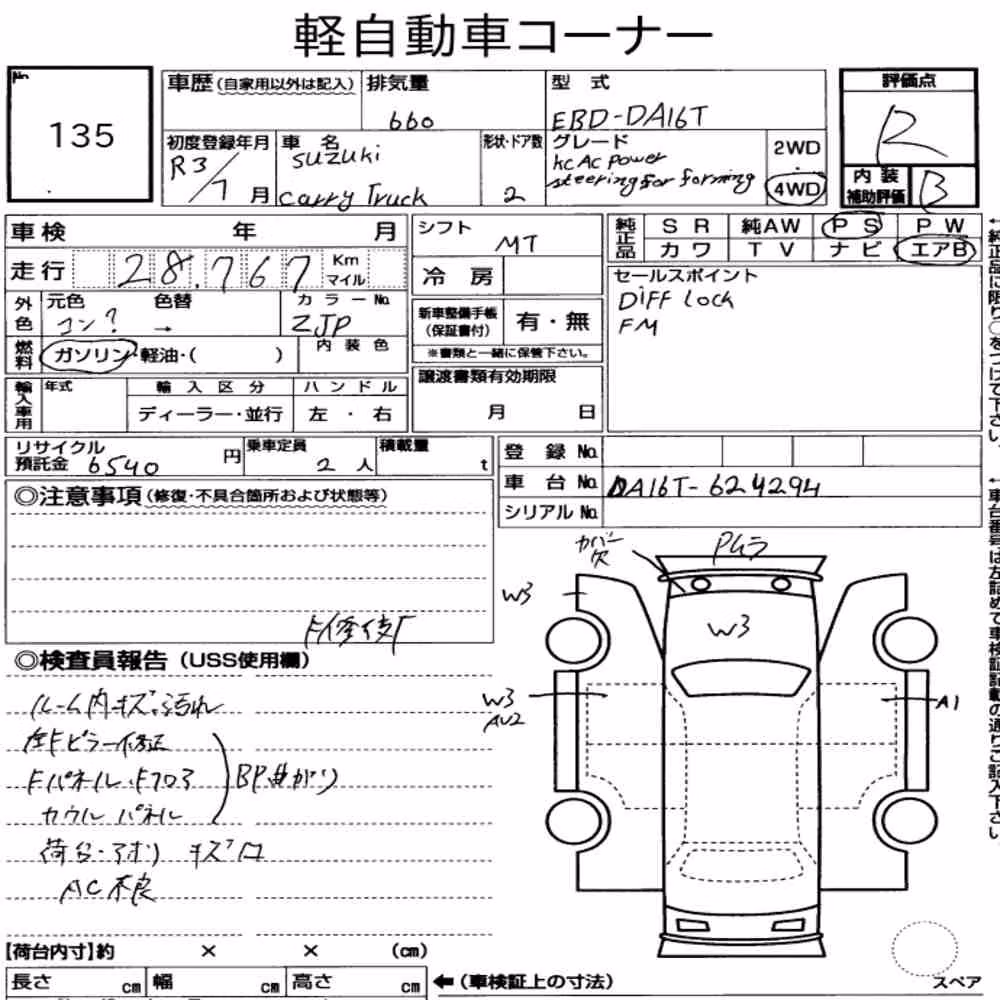 軽自動車コーナー
No 135
車歴(自家用以外は記入) 排気量 660 型式 EBD-DA16T 評価点 R
初度登録年月 R3/7月 車名 SUZUKI Carry Truck 形状・ドア数 2 グレード KC AC Power steering for farming 2WD・4WD 内装補助評価 B
車検 年 月
走行 28,767 Km マイル
シフト MT
冷房
純正品 SR 純AW PS PW
カワ TV ナビ エアB
外色 元色 コン? 色替 → カラーNo. ZJP
燃料 ガソリン・軽油・( ) 内装色
輸入車用 年式 輸入区分 ディーラー・並行 ハンドル 左・右
新車整備手帳(保証書付) 有・無
※書類と一緒に保管下さい。
譲渡書類有効期限
月 日
セールスポイント
DIFF LOCK
FM
リサイクル預託金 6540円 乗車定員 2人 積載量 t
登録No.
車台No. DA16T-624294
シリアルNo.
◎注意事項(修復・不具合箇所および状態等)
◎検査員報告(USS使用欄)
ルーム内キズ・汚れ
左Fピラー修正
Fパネル・Fフロア
カウルパネル
BP曲がり
荷台・アオリ キズ
AC不良
カバー欠
W3
W3
W3
AU2
A1
【荷台内寸】約 × × (cm)
長さ cm 幅 cm 高さ cm ←(車検証上の寸法)
スペア
←純正品に限り○をつけて下さい。
←車台番号は左詰めで車検証記載の通りご記入下さい。